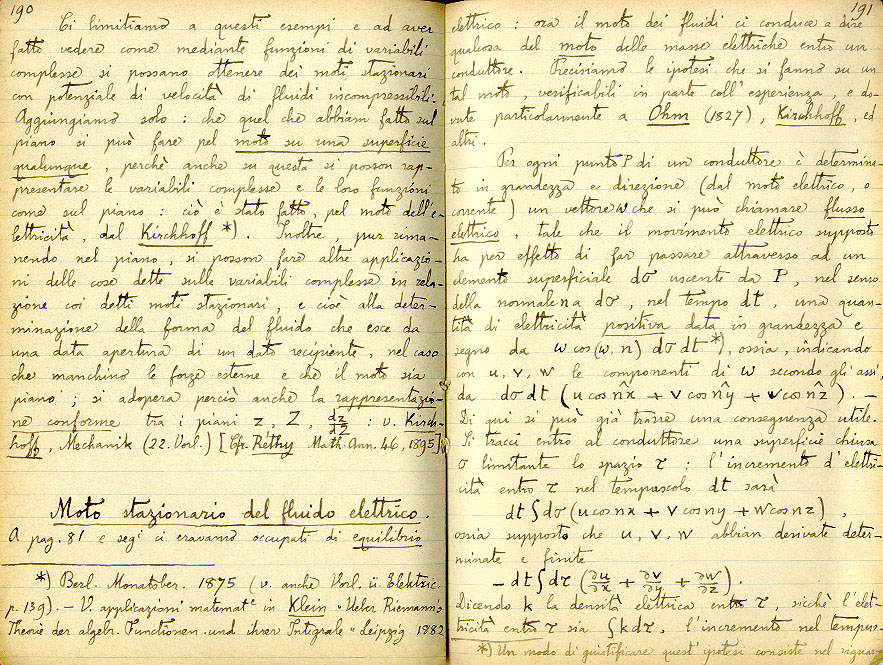 190
Ci limitiamo a questi esempi e ad aver
fatto vedere come mediante funzioni di variabili
complesse si possano ottenere dei moti stazionari
con potenziale di velocità di fluidi incompressibili.
Aggiungiamo solo : che quel che abbiam fatto sul
piano si può fare pel moto su una superficie
qualunque, perchè anche su questa si posson rap-
presentare le variabili complesse e le loro funzioni
come sul piano : ciò è stato fatto, pel moto dell'e-
lettricità, dal Kirchhoff *). Inoltre, pur rima-
nendo nel piano, si posson fare altre applicazio-
ni delle cose dette sulle variabili complesse in rela-
zione coi detti moti stazionari, e cioè alla deter-
minazione della forma del fluido che esce da
una data apertura di un dato recipiente, nel caso
che manchino le forze esterne e che il moto sia
piano ; si adopera perciò anche la rappresentazio-
ne conforme tra i piani z, Z, dz/dZ : v. Kirch-
hoff, Mechanik (22. Vorl.) [Cfr. Réthy Math. Ann. 46, 1895]
Moto stazionario del fluido elettrico.
A pag. 81 e segi ci eravamo occupati di equilibrio
*) Berl. Monatsber. 1875 (v. anche Vorl. ü. Elektric.
p. 139). – V. applicazioni matemate in Klein "Ueber Riemann's
Theorie der algebr. Functionen und ihrer Integrale" Leipzig 1882
191
elettrico : ora il moto dei fluidi ci conduce a dire
qualcosa del moto delle masse elettriche entro un
conduttore. Precisiamo le ipotesi che si fanno su un
tal moto, verificabili in parte coll'esperienza, e do-
vute particolarmente a Ohm (1827), Kirchhoff, ed
altri.
Per ogni punto P di un conduttore è determina-
to in grandezza e direzione (dal moto elettrico, o
corrente) un vettore w che si può chiamare flusso
elettrico, tale che il movimento elettrico supposto
ha per effetto di far passare attraverso ad un
elemento superficiale dσ uscente da P, nel senso
della normale n a dσ, nel tempo dt, una quan-
tità di elettricità positiva data in grandezza e
segno da w cos(w, n) dσ dt *), ossia, indicando
con u, v, w le componenti di w secondo gli assi,
da dσ dt (u cos n̂x + v cos n̂y + w cos n̂z). –
Di qui si può già trarre una conseguenza utile.
Si tracci entro al conduttore una superficie chiusa
σ limitante lo spazio τ : l'incremento d'elettri-
cità entro τ nel tempuscolo dt sarà
dt ∫ dσ (u cos nx + v cos ny + w cos nz) ,
ossia supposto che u, v, w abbian derivate deter-
minate e finite
– dt ∫ dτ (∂u/∂x + ∂v/∂y + ∂w/∂z).
Dicendo k la densità elettrica entro τ, sicchè l'elet-
tricità entro τ sia ∫ k dτ, l'incremento nel tempus-
*) Un modo di giustificare quest'ipotesi consiste nel riguar-